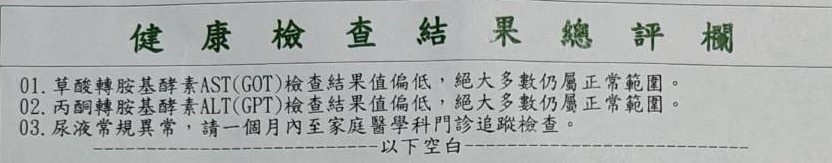 健康檢查結果總評欄
01.草酸轉胺基酵素AST(GOT)檢查結果值偏低，絕大多數仍屬正常範圍。
02.丙酮轉胺基酵素ALT(GPT)檢查結果值偏低，絕大多數仍屬正常範圍。
03.尿液常規異常，請一個月內至家庭醫學科門診追蹤檢查。
----------------------------以下空白----------------------------